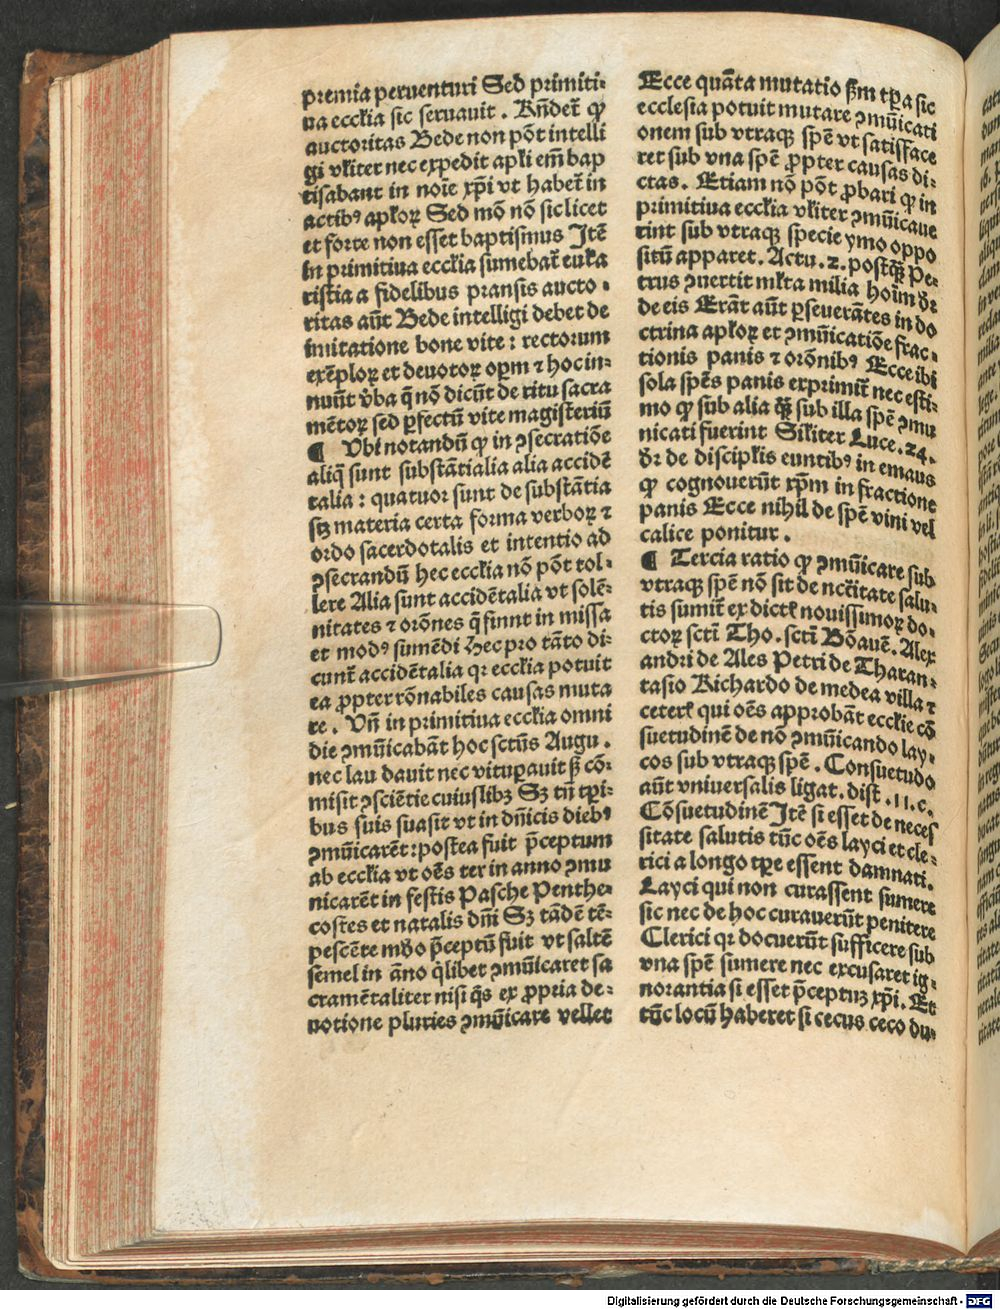 premia peruenturi Sed primiti⸗
ua eccl̓ia sic seruauit . Rn̄det̄ ꝙ
auctoritas Bede non pōt intelli
gi vl̓iter nec expedit apl̓i em̄ bap
tisabant in noīe xp̄i vt habet̄ in
actibꝰ apl̓oꝝ Sed mō nō sic licet
et forte non esset baptismus Itē
In primitiua eccl̓ia sumebat̄ euka
ristia a fidelibus pransis aucto ⸗
ritas aūt Bede intelligi debet de
imitatione bone vite : rectorum
exēploꝝ et deuotoꝝ oꝑm ⁊ hoc in⸗
nuūt v̓ba q̄ nō dicūt de ritu sacra
mētoꝝ sed ꝑfectū vite magisteriū
¶ Vbi notandū ꝙ in ꝯsecratiōe
aliq̄ sunt substātialia alia accidē
talia : quatuor sunt de substātia
sꝫ materia certa forma verboꝝ ⁊
ordo sacerdotalis et intentio ad
ꝯsecrandū hec eccl̓ia nō pōt tol⸗
lere Alia sunt accidētalia vt solē⸗
nitates ⁊ orōnes q̄ fiunt in missa
et modꝰ sumēdi Hec pro tāto di⸗
cunt̄ accidētalia qꝛ eccl̓ia potuit
ea ꝓpter rōnabiles causas muta
re . Vn̄ in primitiua eccl̓ia omni
die ꝯmūicabāt hoc sctūs Augu .
nec lau dauit nec vituꝑauit sꝫ cō⸗
misit ꝯsciētie cuiuslibꝫ Sꝫ tn̄ tꝑi⸗
bus suis suasit vt in dn̄icis diebꝰ
ꝯmūicarēt : postea fuit p̄ceptum
ab eccl̓ia vt oēs ter in anno ꝯmu
nicarēt in festis Pasche Penthe⸗
costes et natalis dn̄i Sꝫ tādē tē⸗
pescēte mūdo p̄ceptū fuit vt saltē
semel in āno q̄libet ꝯmūicaret sa
cramētaliter nisi q̄s ex ꝓpria de⸗
uotione pluries ꝯmūicare vellet
Ecce quāta mutatio sm̄ tꝑa sic
ecclesia potuit mutare ꝯmūicati
onem sub vtraqꝫ spē vt satisface
ret sub vna spē ꝓpter causas di⸗
ctas . Etiam nō pōt ꝓbari ꝙ in
primitiua eccl̓ia vl̓iter ꝯmūicaue
rint sub vtraqꝫ specie ymo oppo
situ̅ apparet . Actu . 2 . postqꝫ Pe⸗
trus ꝯuertit ml̓ta milia hoīm dr̄
de eis Erāt aūt ꝑseuerātes in do
ctrina apl̓oꝝ et ꝯmūicatiōe frac⸗
tionis panis ⁊ orōnibꝰ Ecce ibi
sola spēs panis exprimit̄ nec esti⸗
mo ꝙ sub alia qꝫ sub illa spē ꝯmu
nicati fuerint Sil̓iter Luce . 24 .
dr̄ de discipl̓is euntibꝰ in emaus
ꝙ cognouerūt xp̄m in fractione
panis Ecce nihil de spē vini vel
calice ponitur .
¶ Tercia ratio ꝙ ꝯmūicare sub
vtraqꝫ spē nō sit de nc̄citate salu⸗
tis sumit̄ ex dictꝭ nouissimoꝝ do⸗
ctoꝝ sctī Tho . sctī Bōauē . Alex
andri de Ales Petri de Tharan⸗
tasio Richardo de medea villa ⁊
ceterꝭ qui oēs approbāt eccl̓ie cō
suetudinē de nō ꝯmūicando lay⸗
cos sub vtraqꝫ spē . Consuetudo
aūt vniuersalis ligat . dist . 11 . c .
Cōsuetudinē Itē si esset de neces
sitate salutis tūc oēs layci et cle⸗
rici a longo tꝑe essent damnati .
Layci qui non curassent sumere
sic nec de hoc curauerūt penitere
Clerici qꝛ docuerūt sufficere sub
vna spē sumere nec excusaret ig⸗
norantia si esset p̄ceptuꝫ xp̄i . Et
tūc locū haberet si cecus ceco du⸗
Digitalisierung gefördert durch die Deutsche Forschungsgemeinschaft - DFG